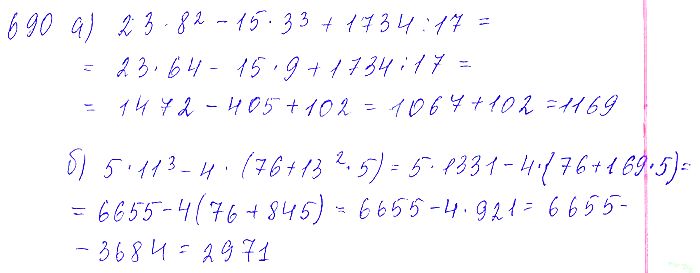 690 а) 23·8² - 15·3³ + 1734:17 =
= 23·64 - 15·9 + 1734:17 =
= 1472 - 405 + 102 = 1067 + 102 = 1169
б) 5·11³ - 4·(76+13²·5) = 5·1331 - 4·(76+169·5) =
= 6655 - 4(76+845) = 6655 - 4·921 = 6655 -
- 3684 = 2971